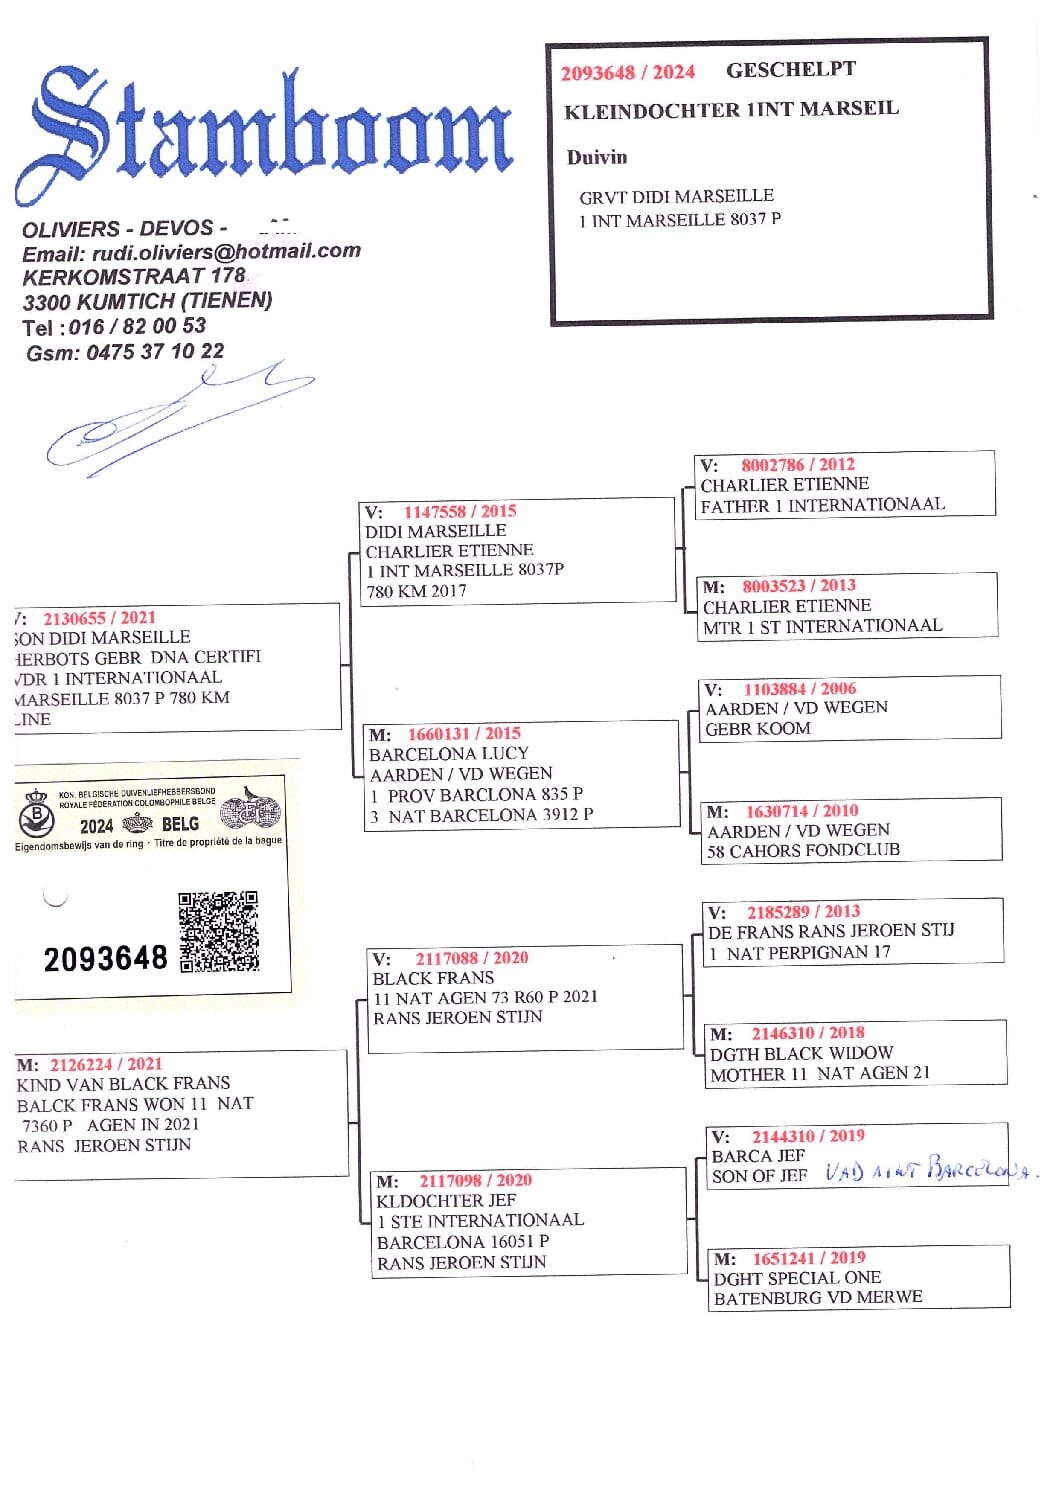 Stamboom
OLIVIERS - DEVOS -
Email: rudi.oliviers@hotmail.com
KERKOMSTRAAT 178
3300 KUMTICH (TIENEN)
Tel : 016 / 82 00 53
Gsm: 0475 37 10 22
2093648 / 2024 GESCHELPT
KLEINDOCHTER 1INT MARSEIL
Duivin
GRVT DIDI MARSEILLE
1 INT MARSEILLE 8037 P
V: 2130655 / 2021
SON DIDI MARSEILLE
HERBOTS GEBR DNA CERTIFI
VDR 1 INTERNATIONAAL
MARSEILLE 8037 P 780 KM
LINE
KON. BELGISCHE DUIVENLIEFHEBBERSBOND
ROYALE FÉDÉRATION COLOMBOPHILE BELGE
B
2024 BELG
Eigendomsbewijs van de ring - Titre de propriété de la bague
2093648
M: 2126224 / 2021
KIND VAN BLACK FRANS
BALCK FRANS WON 11 NAT
7360 P AGEN IN 2021
RANS JEROEN STIJN
V: 1147558 / 2015
DIDI MARSEILLE
CHARLIER ETIENNE
1 INT MARSEILLE 8037P
780 KM 2017
M: 1660131 / 2015
BARCELONA LUCY
AARDEN / VD WEGEN
1 PROV BARCLONA 835 P
3 NAT BARCELONA 3912 P
V: 2117088 / 2020
BLACK FRANS
11 NAT AGEN 73 R60 P 2021
RANS JEROEN STIJN
M: 2117098 / 2020
KLDOCHTER JEF
1 STE INTERNATIONAAL
BARCELONA 16051 P
RANS JEROEN STIJN
V: 8002786 / 2012
CHARLIER ETIENNE
FATHER 1 INTERNATIONAAL
M: 8003523 / 2013
CHARLIER ETIENNE
MTR 1 ST INTERNATIONAAL
V: 1103884 / 2006
AARDEN / VD WEGEN
GEBR KOOM
M: 1630714 / 2010
AARDEN / VD WEGEN
58 CAHORS FONDCLUB
V: 2185289 / 2013
DE FRANS RANS JEROEN STIJ
1 NAT PERPIGNAN 17
M: 2146310 / 2018
DGTH BLACK WIDOW
MOTHER 11 NAT AGEN 21
V: 2144310 / 2019
BARCA JEF
SON OF JEF VAD 1 INT BARCELONA.
M: 1651241 / 2019
DGHT SPECIAL ONE
BATENBURG VD MERWE